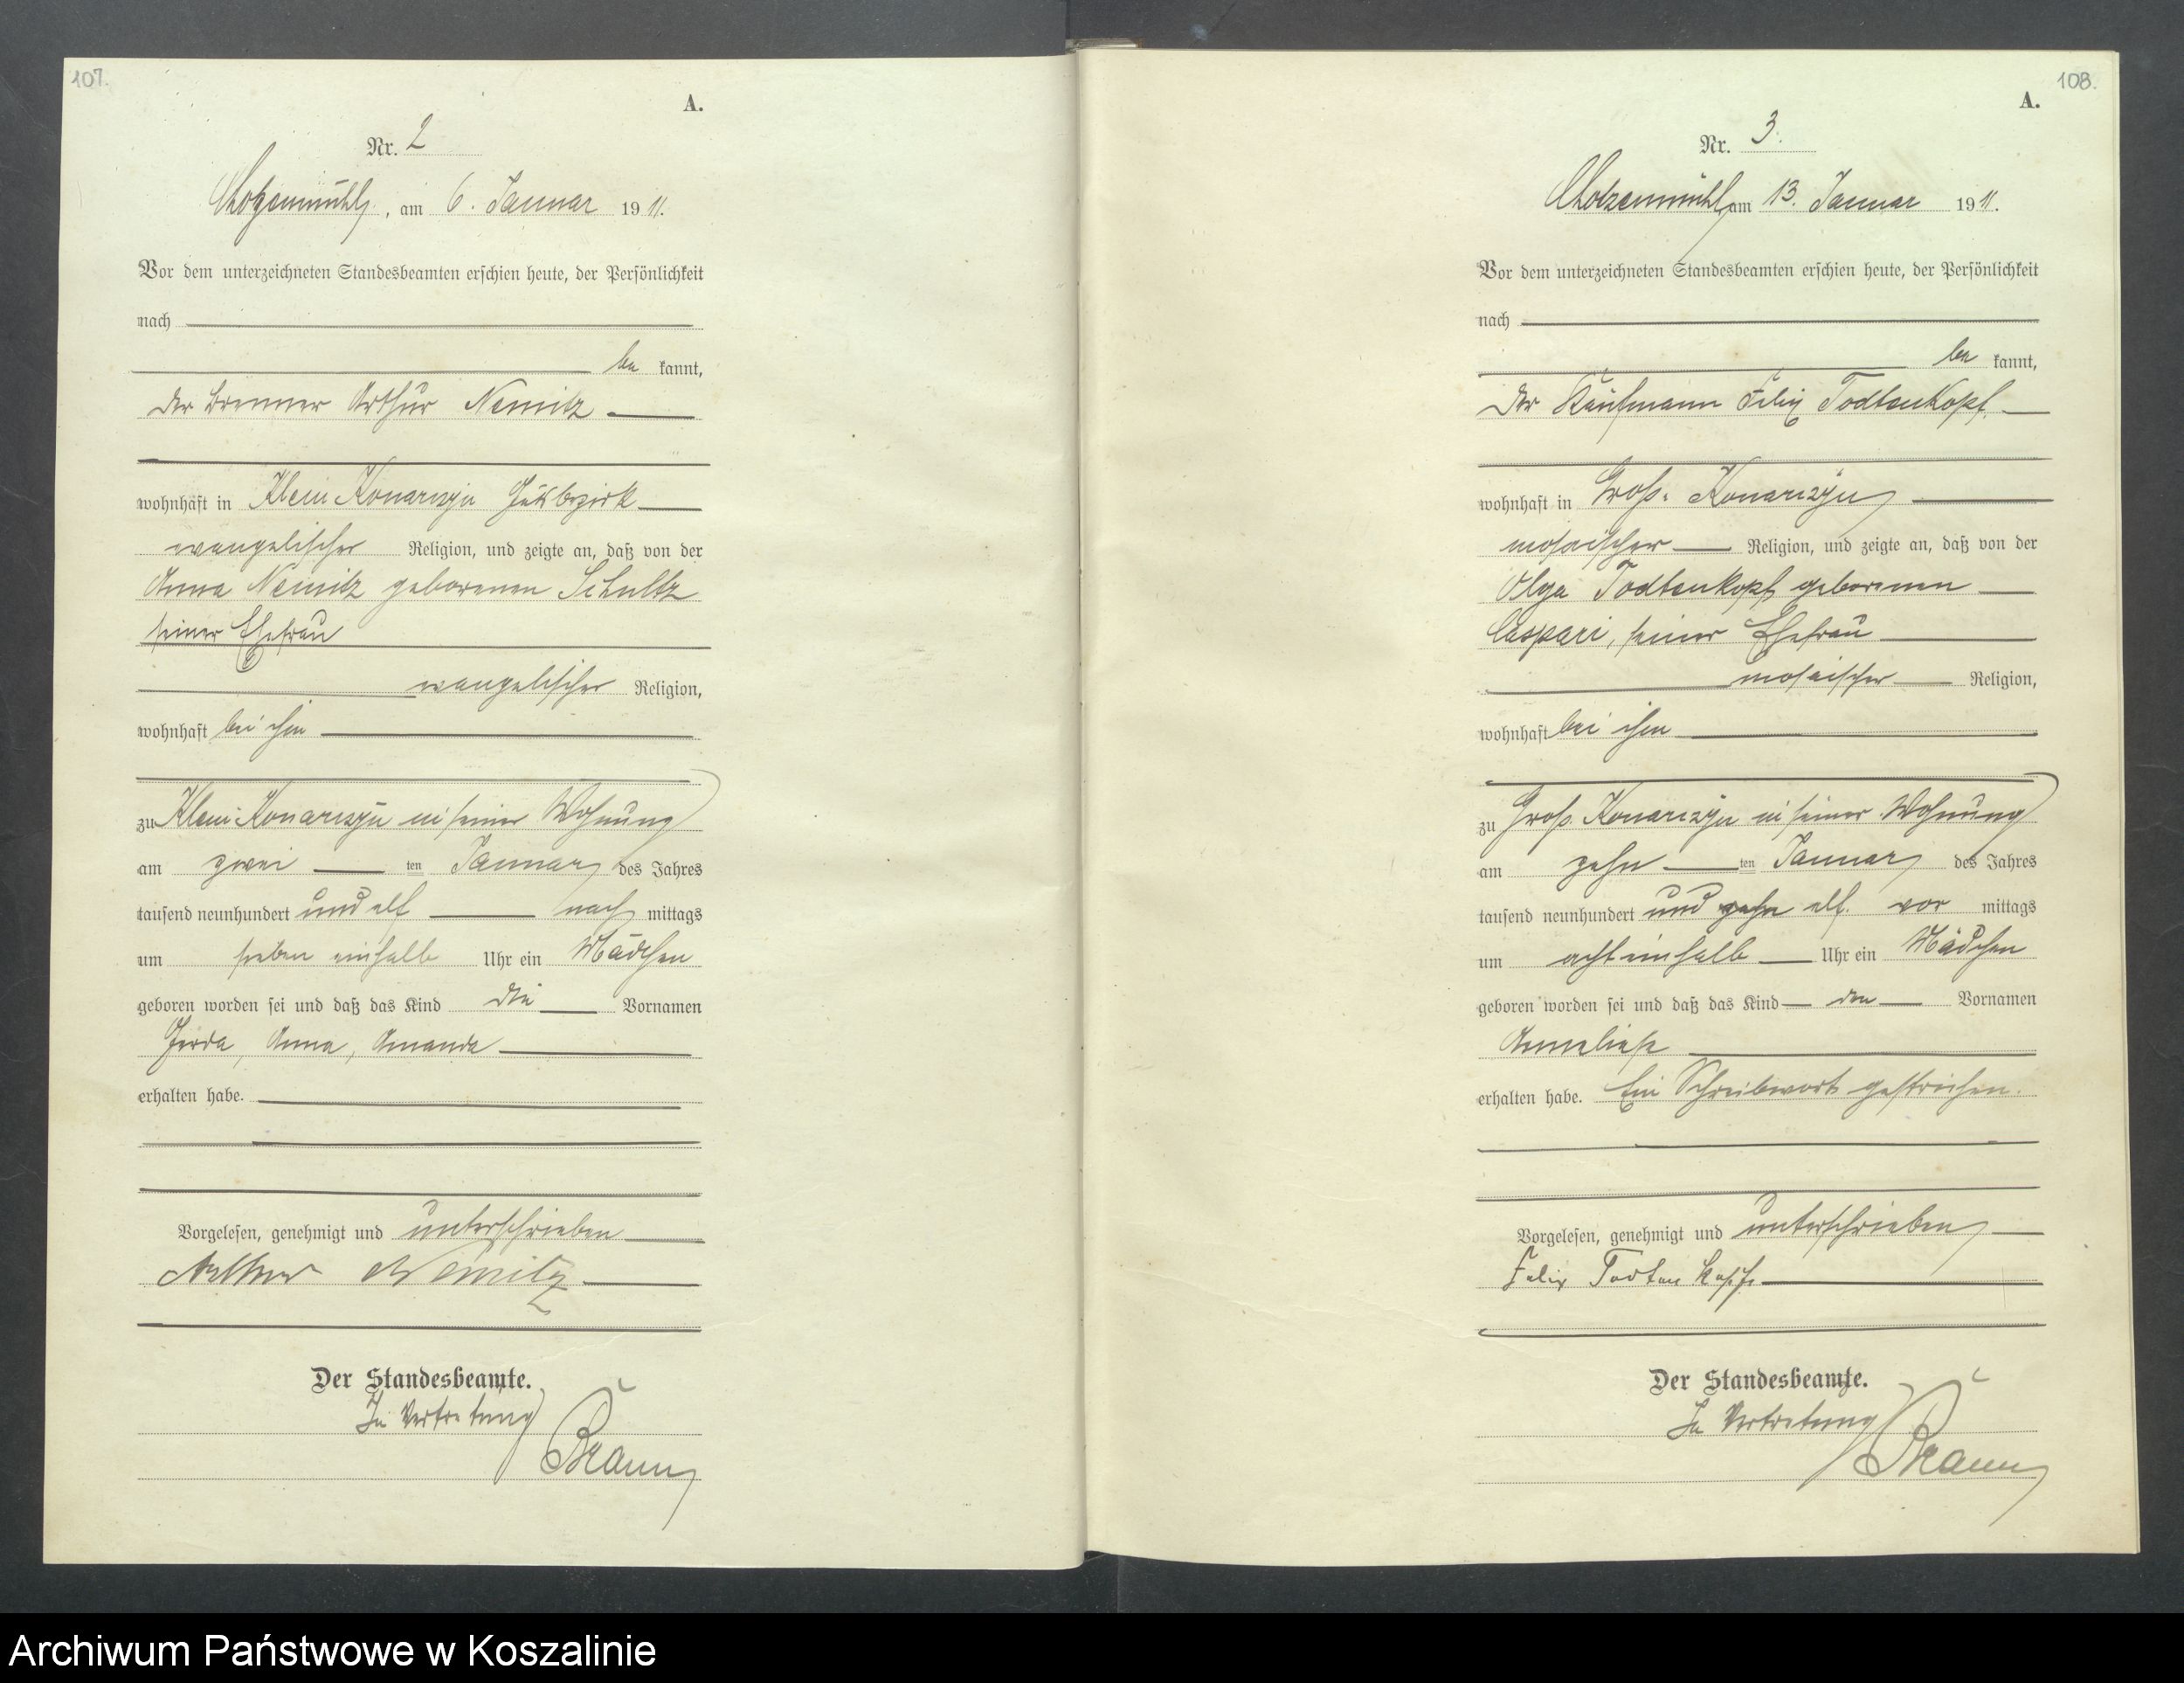 107.
A.
Nr. 2
Chotzenmühl, am 6. Januar 1911.
Vor dem unterzeichneten Standesbeamten erschien heute, der Persönlichkeit
nach
be kannt,
der Brenner Arthur Nemitz
wohnhaft in Klein Konarczyn Gutsbezirk
evangelischer Religion, und zeigte an, daß von der
Anna Nemitz geborenen Schultz
seiner Ehefrau
evangelischer Religion,
wohnhaft bei ihm
zu Klein-Konarczyn in seiner Wohnung
am zwei ten Januar des Jahres
tausend neunhundert und elf nach mittags
um sieben einhalb Uhr ein Mädchen
geboren worden sei und daß das Kind die Vornamen
Gerda, Anna, Amanda
erhalten habe.
Vorgelesen, genehmigt und unterschrieben
Arthur Nemitz
Der Standesbeamte.
In Vertretung
Braun
108.
A.
Nr. 3.
Chotzenmühl, am 13. Januar 1911.
Vor dem unterzeichneten Standesbeamten erschien heute, der Persönlichkeit
nach
be kannt,
der Kaufmann Felix Todtenkopf
wohnhaft in Groß-Konarczyn
mosaischer Religion, und zeigte an, daß von der
Olga Todtenkopf geborenen
Caspari, seiner Ehefrau
mosaischer Religion,
wohnhaft bei ihm
zu Groß-Konarczyn in seiner Wohnung
am zehn ten Januar des Jahres
tausend neunhundert und zehn elf. vor mittags
um acht einhalb Uhr ein Mädchen
geboren worden sei und daß das Kind den Vornamen
Anneliese
erhalten habe. Ein Schreibwort gestrichen.
Vorgelesen, genehmigt und unterschrieben
Felix Todtenkopf
Der Standesbeamte.
In Vertretung
Braun
Archiwum Państwowe w Koszalinie